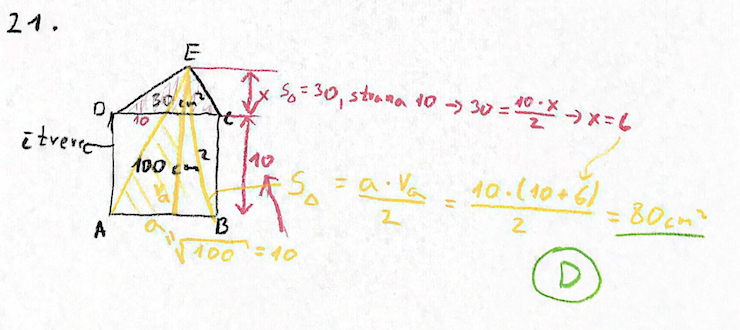 21.
E
D 30 cm² x S△ = 30, strana 10 → 30 = 10·x/2 → x = 6
10 C
čtverec
100 cm² 10
va S△ = a·va/2 = 10·(10+6)/2 = 80 cm²
A B
a = √100 = 10
D